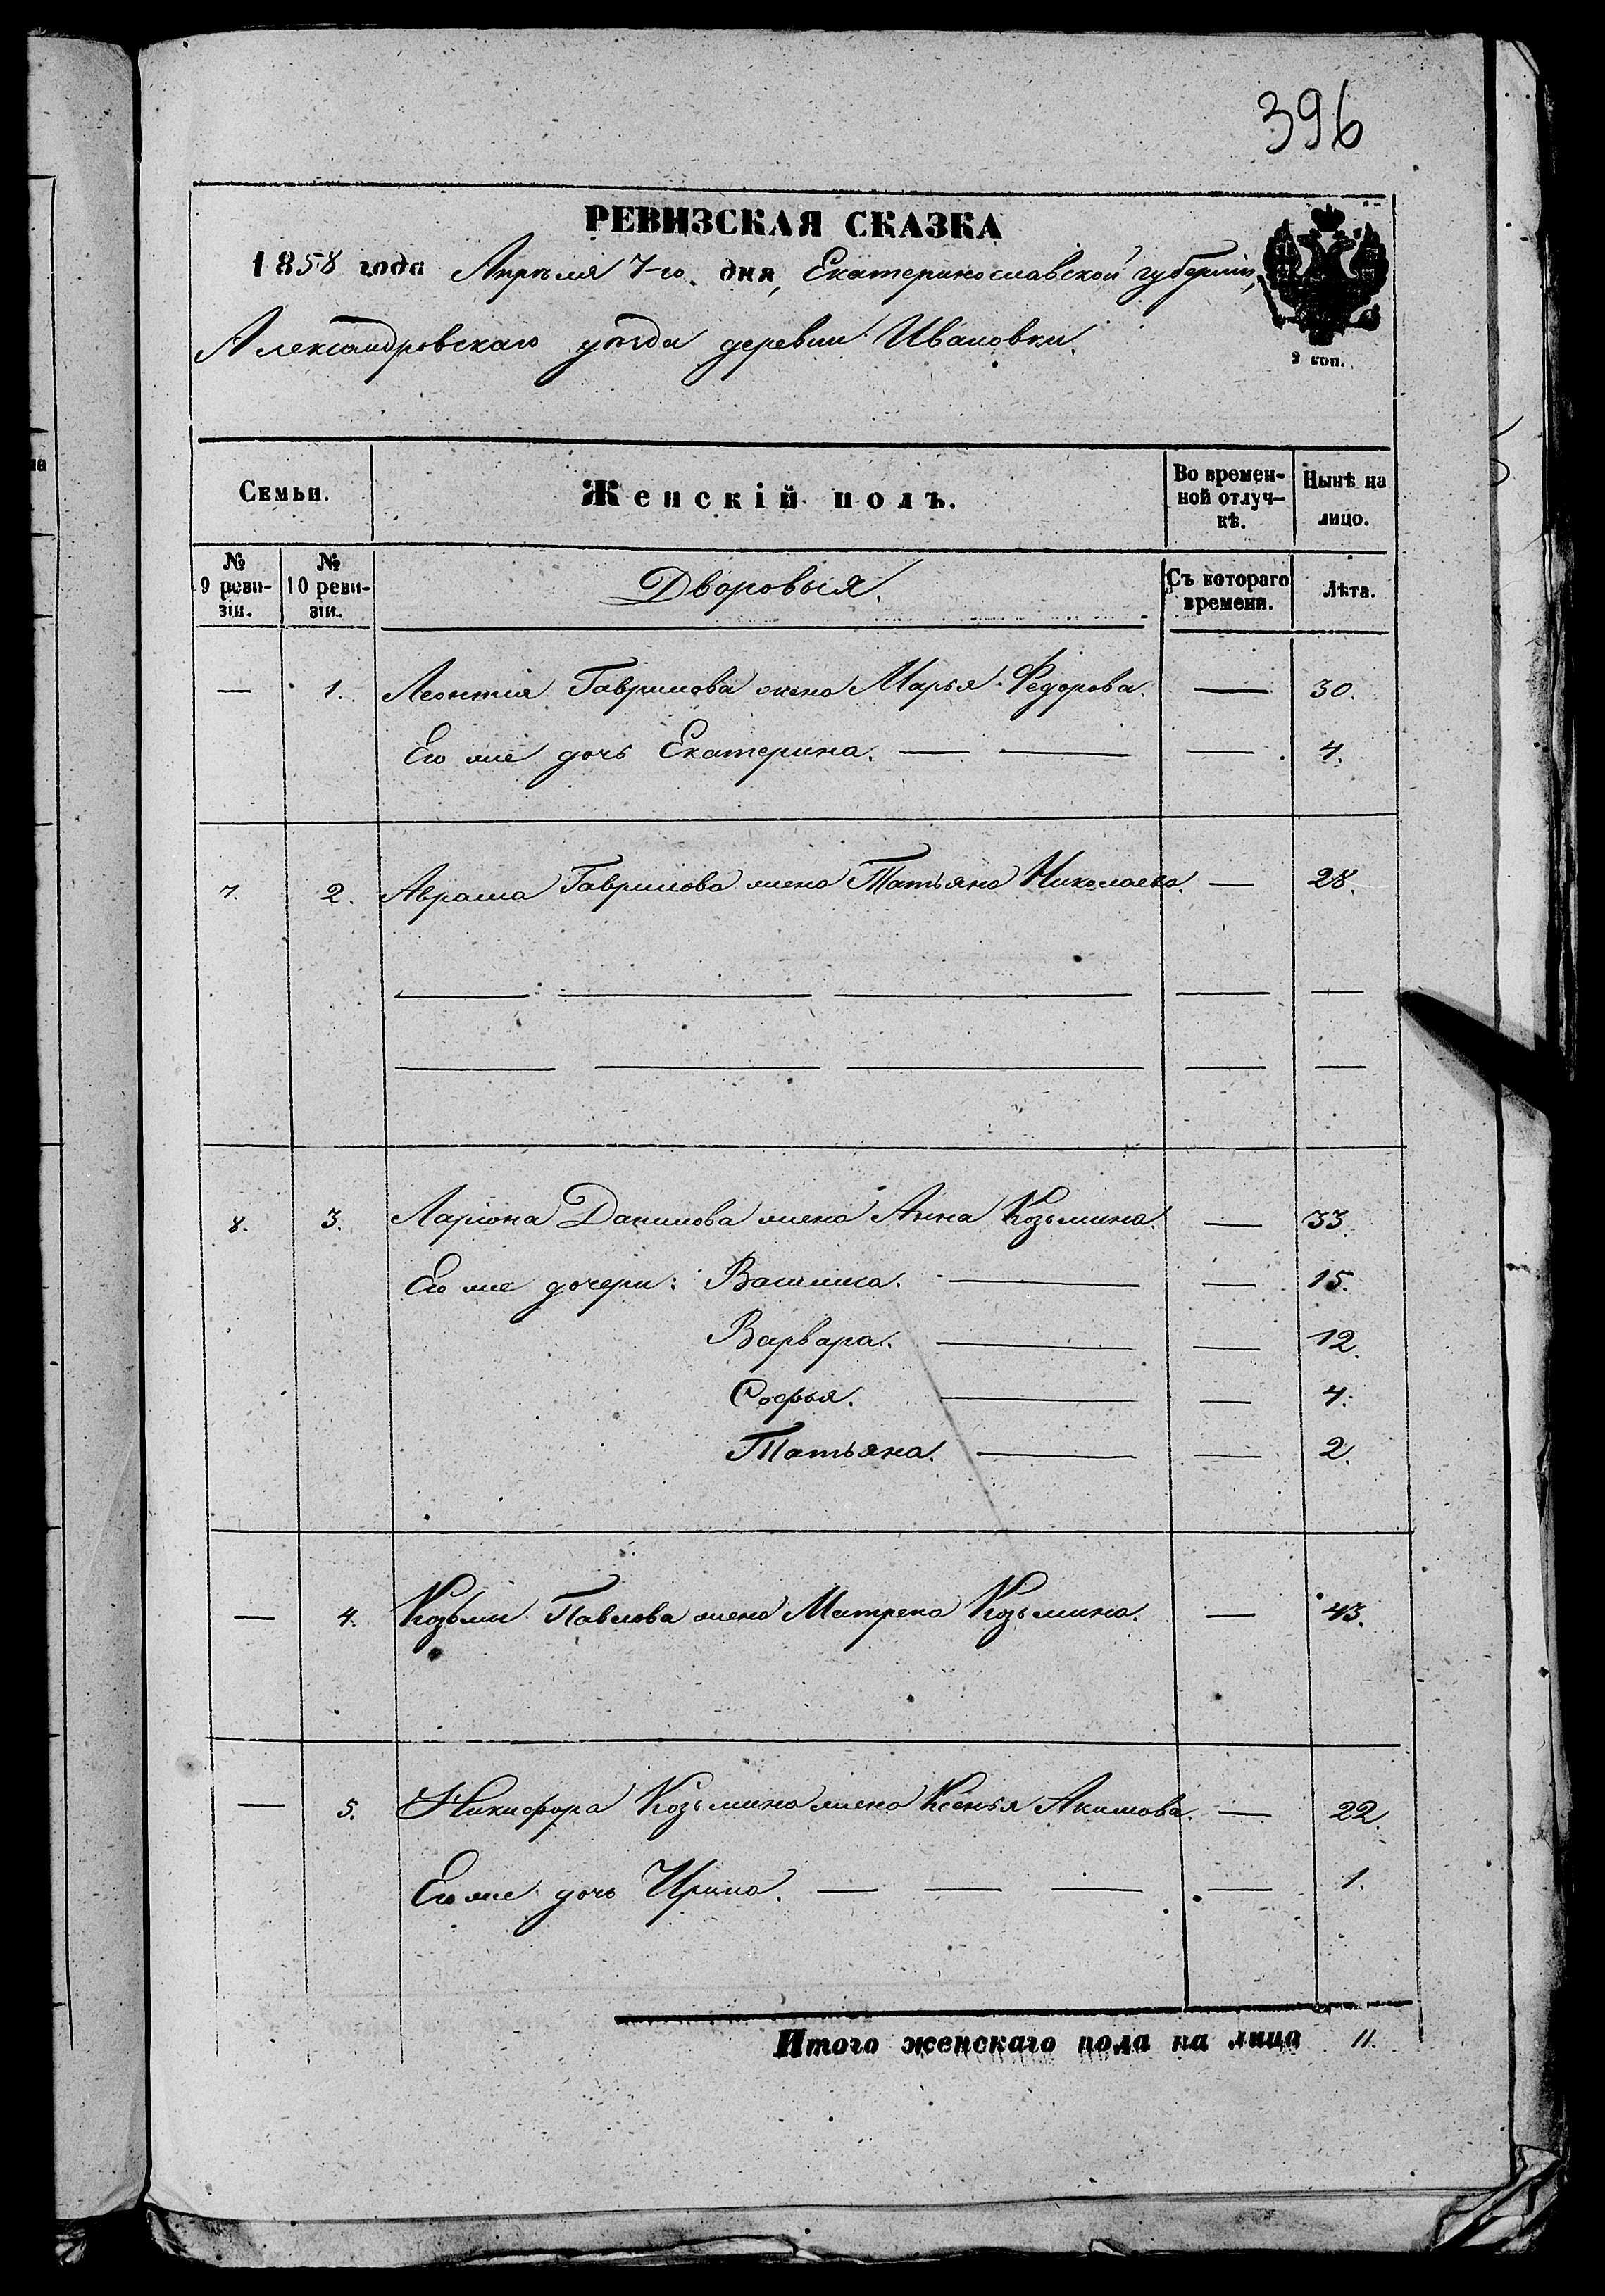 396
РЕВИЗСКАЯ СКАЗКА
1858 года Апрѣля 7-го дня, Екатеринославской губерніи,
Александровскаго уѣзда деревни Ивановки.
2 коп.
Семьи. Женскій полъ. Во времен-ной отлуч-кѣ. Нынѣ на лицо.
№ 9 реви-зіи. № 10 реви-зіи. Дворовыя. Съ котораго времени. Лѣта.
— 1. Леонтія Гаврилова жена Марья Федорова. — 30.
Его же дочь Екатерина. — — — 4.
7. 2. Абрама Гаврилова жена Татьяна Николаева. — 28.
8. 3. Ларіона Данилова жена Анна Козьмина. — 33.
Его же дочери: Василиса. — — 15.
Варвара. — — 12.
Софья. — — 4.
Татьяна. — — 2.
— 4. Козьмы Павлова жена Матрена Козьмина. — 43.
— 5. Никифора Козьмина жена Ксенья Акимова. — 22.
Его же дочь Ирина. — — — — 1.
Итого женскаго пола на лицо 11.